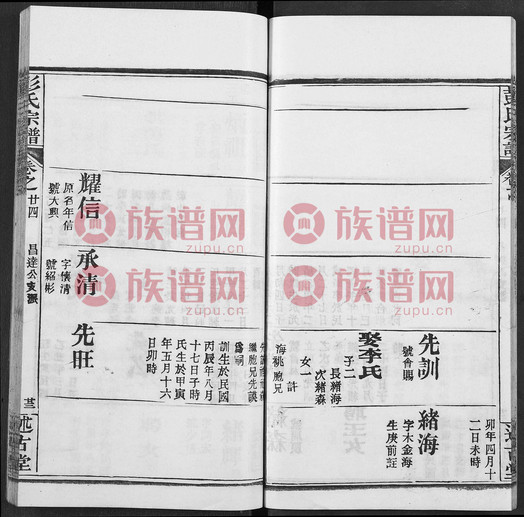 彭氏宗譜
卯年四月十
二日未時
緒海
字木金海
生庚前註
先訓
號會賜
娶李氏
子二
長緒海
次緒森
女一
許
海桃胞兄
繼胞兄先謨
為嗣
訓生於民國
丙辰年八月
十七日子時
氏生於甲寅
年五月十六
日卯時
先旺
承清
字懷清
號紹彬
耀信
原名年信
號大興
彭氏宗譜
卷之
廿四
昌達公支派
述古堂
族谱网
zupu.cn
族谱网
zupu.cn
族谱网
zupu.cn
族谱网
zupu.cn